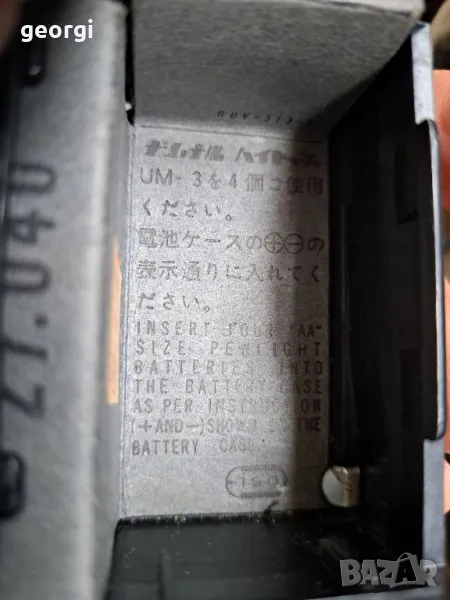 georgi
ナショナル ハイトップ
UM-3を4個ご使用
ください。
電池ケースの⊕⊖の
表示通りに入れてく
ださい。
INSERT FOUR "AA"
SIZE PENLIGHT
BATTERIES INTO
THE BATTERY CASE
AS PER INSTRUCTION
(+AND-)SHOWN ON THE
BATTERY CASE.
27.040
BAZAR